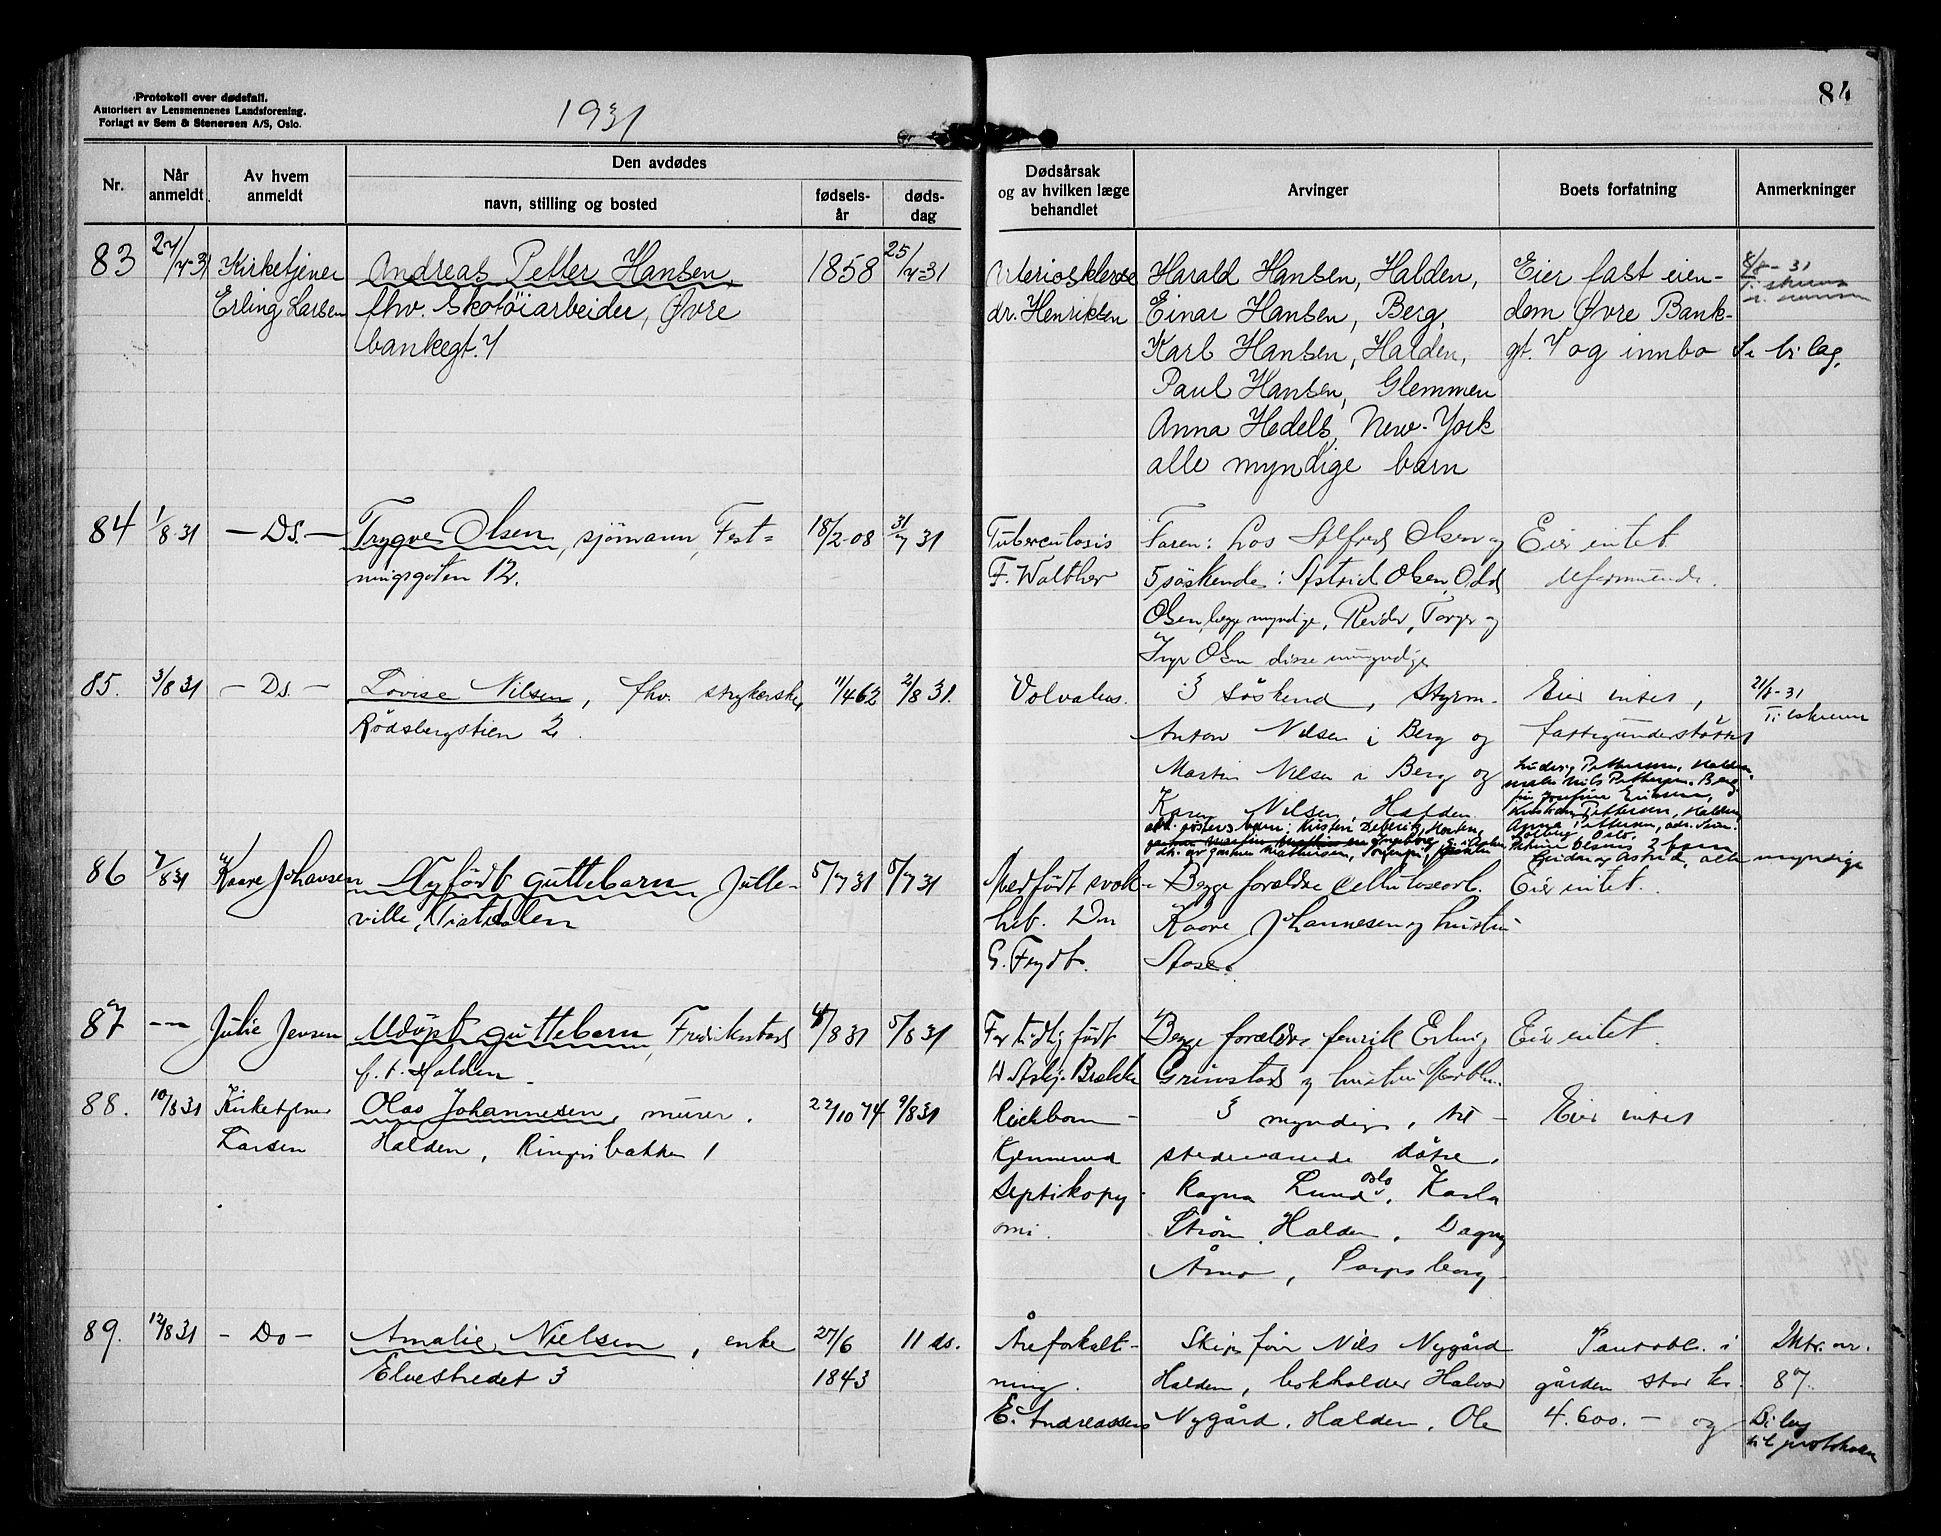 Protokoll over dødsfall.
Autorisert av Lensmennenes Landsforening.
Forlagt av Sem & Stenersen A/S, Oslo.
1931
84
Nr.
Når anmeldt
Av hvem anmeldt
Den avdødes
navn, stilling og bosted
fødsels-år
døds-dag
Dødsårsak og av hvilken læge behandlet
Arvinger
Boets forfatning
Anmerkninger
83 27/7-31 Kirketjener Andreas Petter Hansen, 1858 25/7-31 Arteriosklerose Harald Hansen, Halden, Eier fast eien- 8/8-31
Erling Larsen fhv. skotøiarbeider, Øvre dr. Henriksen Einar Hansen, Berg, dom Øvre Bank-
bankegt. 7 Karl Hansen, Halden, gt. 7 og innbo Se bilag.
Paul Hansen, Glemmen
Anna Hedels, New-York
alle myndige barn
84 1/8-31 — Ds. — Trygve Olsen, sjømann, Fest- 18/2-08 31/7 31 Tuberculosis Faren: Olsen og Eier intet
ningsgaten 12. F. Walther 5 søskende: Astrid Olsen, Odd
Olsen, begge myndige, Reidar, Torger og
Olsen disse umyndige
85. 3/8 31 — Ds. — Lovise Nilsen, fhv. strykerske, 11/4 62 2/8 31. Volvulus. 3 søskend, Styrm. Eier intet, 21/8-31
Rødsbergstien 2. Anton Nilsen i Berg og fattigunderstøttet Til skrim
Martin Nilsen i Berg og Ludvig Pettersen, Halden,
Karen Nilsen, Halden Nils Pettersen, Berg,
Kristian Pettersen, Halden,
Anna Pettersen,
Solberg, Oslo.
2 barn
og Astrid, alle myndige
86 7/8 31 Kaare Johansen Nyfødt guttebarn Julle- 5/7 31 5/7 31 Medfødt svak- Begge foreldre cellulosearb. Eier intet.
ville, Tistedalen het. Kaare Johannesen og hustru
G. Frydt. Aase.
87 — Julie Jensen Udøpt guttebarn, Fredrikstad 4/8 31 5/8 31 For tidlig født Begge foreldre, fenrik Erling Eier intet.
f. t. Halden. Brekke Grimstad og hustru
88. 10/8 31 Kirketjener Olas Johannesen, murer. 22/10 74 9/8 31 3 myndige, til- Eier intet
Larsen Halden, Ringsbakken 1 Kjennerud stedeværende døtre,
Septikopy- Ragna Lund, Oslo, Karla
emi. Strøm, Halden, Dagny
Årnø, Sarpsborg.
89. 12/8 31 — Do — Amalie Nielsen, enke 27/6 11 ds. Åreforkalk- Skipsfører Nils Nygård Pantobl. i Dktr. nr.
Elvestredet 3 1843 ning. Halden, bokholder Halvor gården stor kr. 87.
E. Andreassen Nygård, Halden, Ole 4.600.- og Bilag
til protokollen